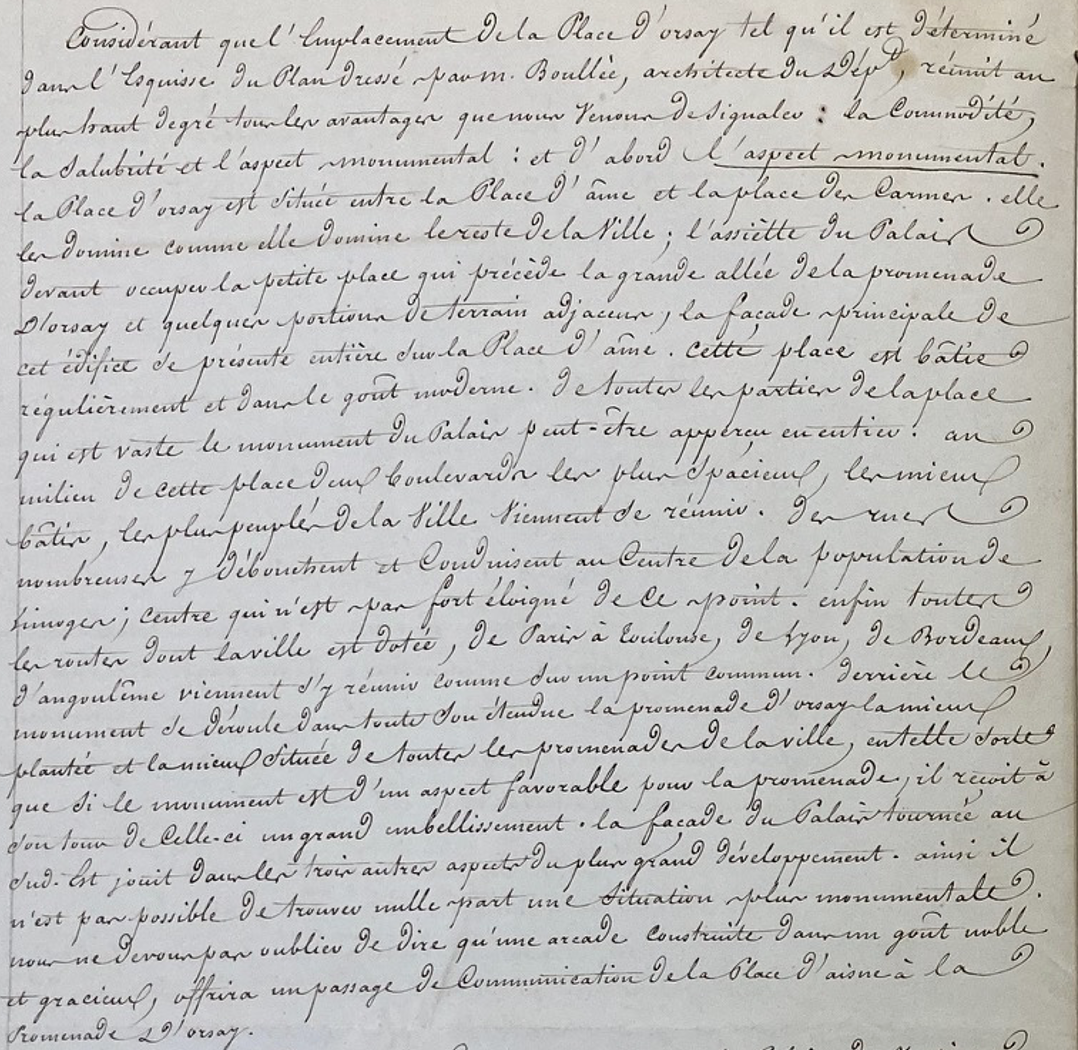 Considérant que l'Emplacement de la Place d'orsay tel qu'il est déterminé
dans l'Esquisse du Plan dressé par m. Boullée, architecte du Dépt, réunit au
plus haut degré tous les avantages que nous Venons de signaler : la Commodité,
la Salubrité et l'aspect monumental : et d'abord l'aspect monumental.
la Place d'orsay est située entre la Place d'âine et la place des Carmes. elle
les domine comme elle domine le reste de la Ville ; l'assiette du Palais
devant occuper la petite place qui précède la grande allée de la promenade
D'orsay et quelques portions de terrain adjacens, la façade principale de
cet édifice se présente entière sur la Place d'âine. cette place est bâtie
régulièrement et dans le goût moderne. de toutes les parties de la place
qui est vaste le monument du Palais peut-être apperçu en entier. au
milieu de cette place deux boulevards les plus spacieux, les mieux
bâtis, les plus peuplés de la Ville Viennent se réunir. des rues
nombreuses y débouchent et Conduisent au Centre de la population de
Limoges ; centre qui n'est pas fort éloigné de ce point. enfin toutes
les routes dont la ville est dotée, de Paris à Toulouse, de Lyon, de Bordeaux,
d'angoulême viennent s'y réunir comme sur un point commun. derrière le
monument se déroule dans toute son étendue la promenade d'orsay la mieux
plantée et la mieux située de toutes les promenades de la ville, en telle sorte
que si le monument est d'un aspect favorable pour la promenade, il reçoit à
son tour de Celle-ci un grand embellissement. la façade du Palais tournée au
sud-Est jouit dans les trois autres aspects du plus grand développement. ainsi il
n'est pas possible de trouver nulle part une situation plus monumentale.
nous ne devons pas oublier de dire qu'une arcade construite dans un goût noble
et gracieux, offrira un passage de Communication de la Place d'aisne à la
Promenade D'orsay.